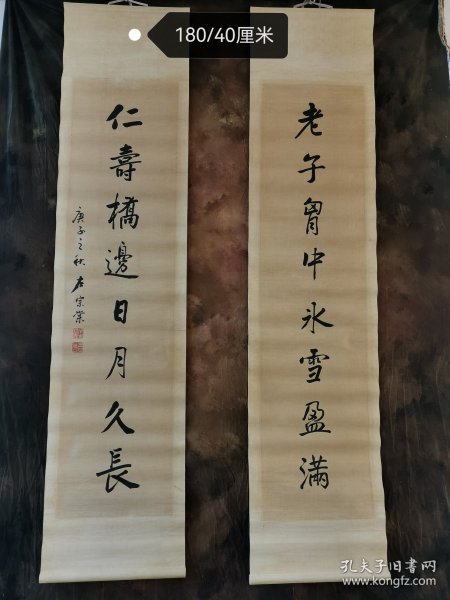 180/40厘米
老子胷中氷雪盈滿
仁壽橋邊日月久長
庚子之秋 左宗棠
孔夫子旧书网
www.kongfz.com